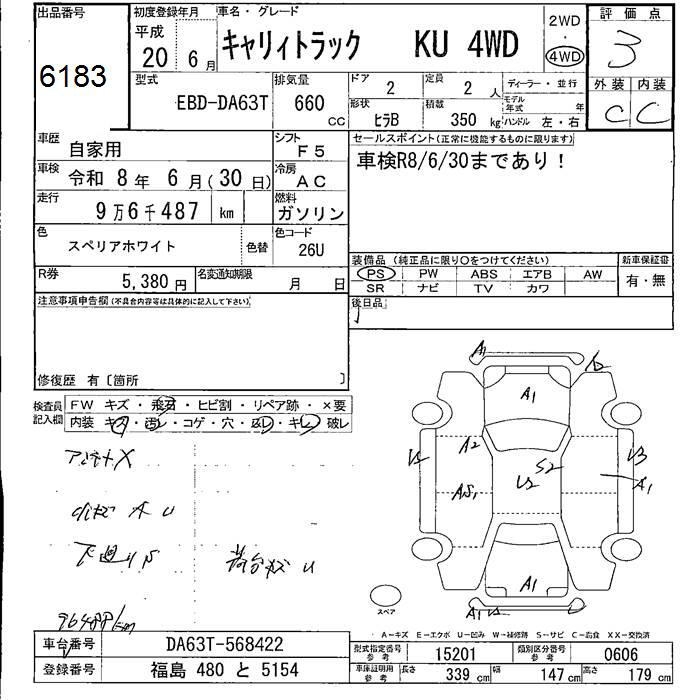 出品番号 初度登録年月 車名・グレード 2WD・4WD 評価点
6183 平成 20 6月 キャリィトラック KU 4WD 3
型式 排気量 ドア 2 定員 2人 ディーラー・並行 外装 内装
EBD-DA63T 660 cc 形状 ヒラB 積載 350 kg モデル年式 年 ハンドル 左・右 C C
車歴 自家用 シフト F5 セールスポイント(正常に機能するものに限ります)
車検 令和 8年 6月(30日) 冷房 AC 車検R8/6/30まであり!
走行 9万6千487 km 燃料 ガソリン
色 スペリアホワイト 色替 色コード 26U
装備品(純正品に限り○をつけてください) 新車保証書
R券 5,380円 名変通知期限 月 日 PS PW ABS エアB AW 有・無
SR ナビ TV カワ
注意事項申告欄(不具合内容等は具体的に記入して下さい) 後日品
修復歴 有〔箇所 〕
検査員記入欄 FW キズ・飛石・ヒビ割・リペア跡・×要
内装 キズ・汚レ・コゲ・穴・スレ・キレ・破レ
A1
A1
A2
S2
U2
A1
A1
A1
下廻りS 荷台キズU
96488P/km
スペア
A-キズ E-エクボ U-凹み W-補修跡 S-サビ C-腐食 XX-交換済
車台番号 DA63T-568422 型式指定番号 参考 15201 類別区分番号 参考 0606
登録番号 福島 480 と 5154 車庫証明用 参考 長さ 339 cm 幅 147 cm 高さ 179 cm